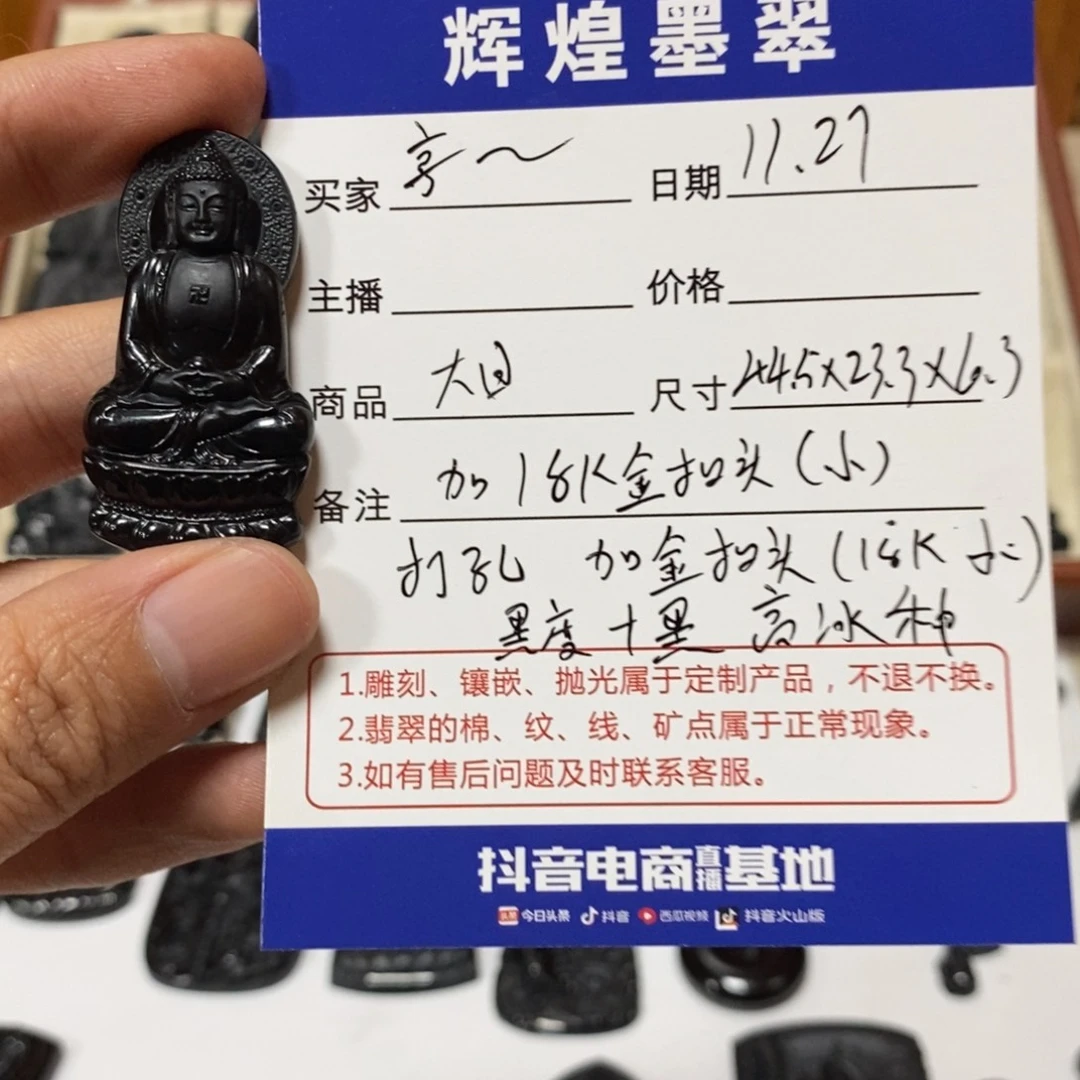 辉煌墨翠
买家 亨～ 日期 11.27
主播 价格
商品 大日 尺寸 44.5X23.3X6.3
备注 加18K金扣头(小)
打孔 加金扣头(18K 小)
黑度十黑 高冰种
1.雕刻、镶嵌、抛光属于定制产品，不退不换。
2.翡翠的棉、纹、线、矿点属于正常现象。
3.如有售后问题及时联系客服。
抖音电商直播基地
头条 今日头条 抖音 西瓜视频 抖音火山版
卍